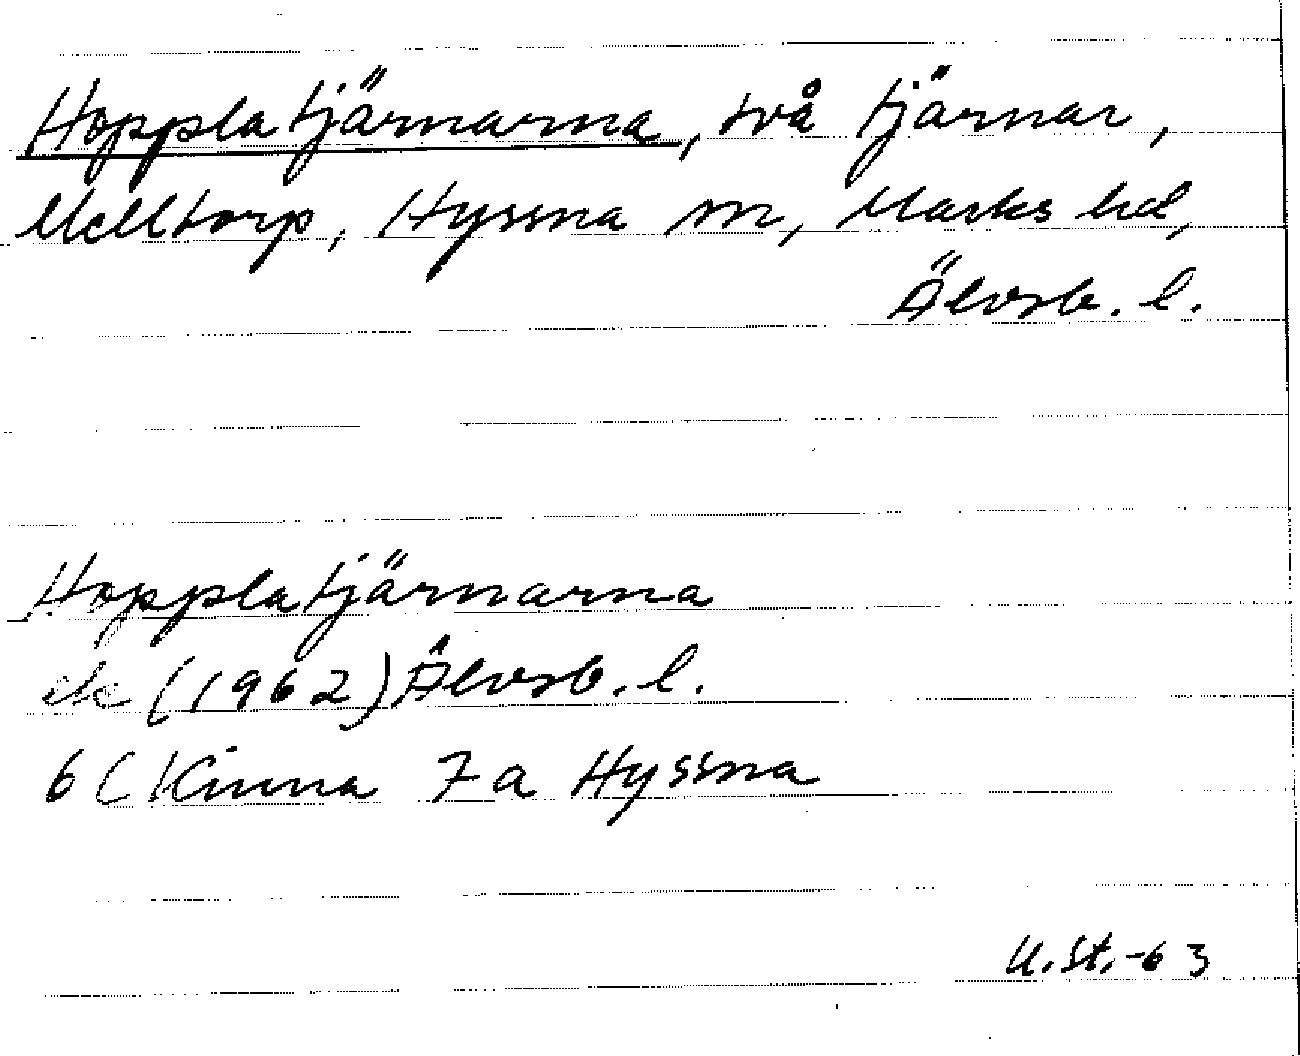 Hopplatjärnarna, två tjärnar,
Melltorp, Hyssna sn, Marks hd,
Älvsb. l.
Hopplatjärnarna
ek (1962) Älvsb. l.
6C Kinna 7a Hyssna
U.St.-63